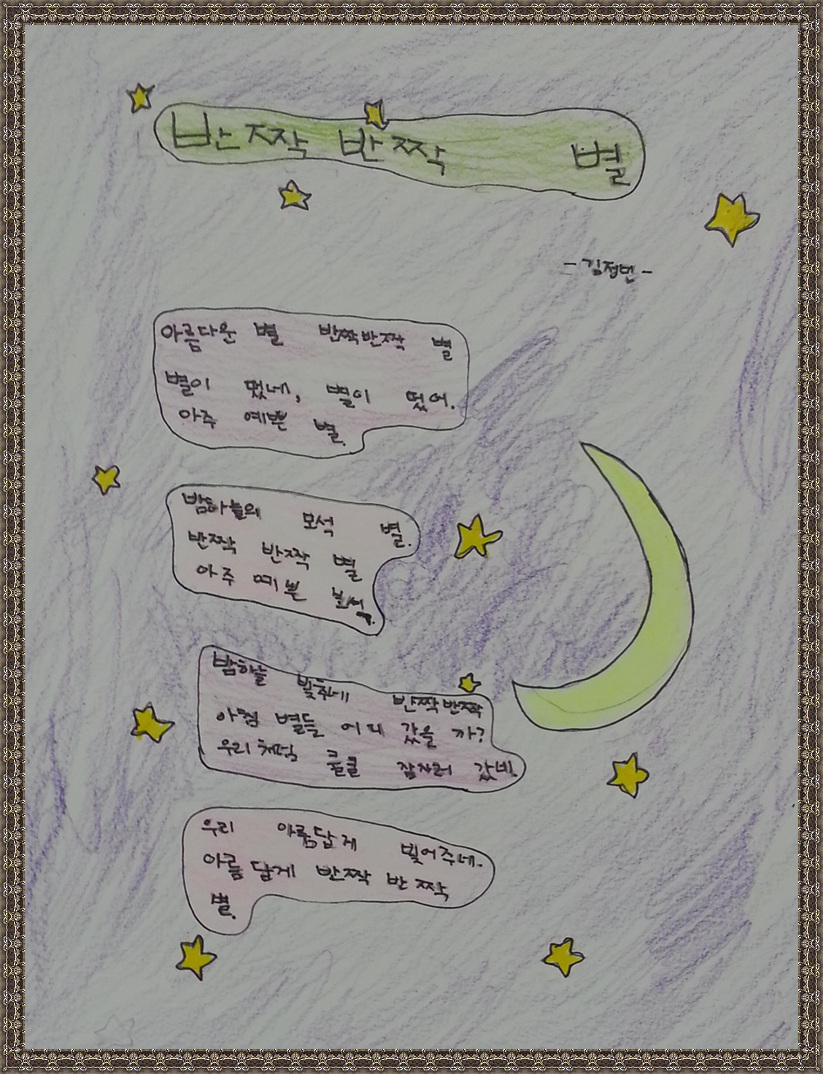 반짝 반짝 별
아름다운 별 반짝반짝 별
별이 떴네, 별이 떴어.
아주 예쁜 별.
밤하늘의 보석 별.
반짝 반짝 별
아주 예쁜 보석.
밤하늘 빛추네 반짝반짝
아침 별들 어디 갔을 까?
우리처럼 쿨쿨 잠자러 갔네.
우리 아름답게 빛어주네.
아름답게 반짝 반짝
별.